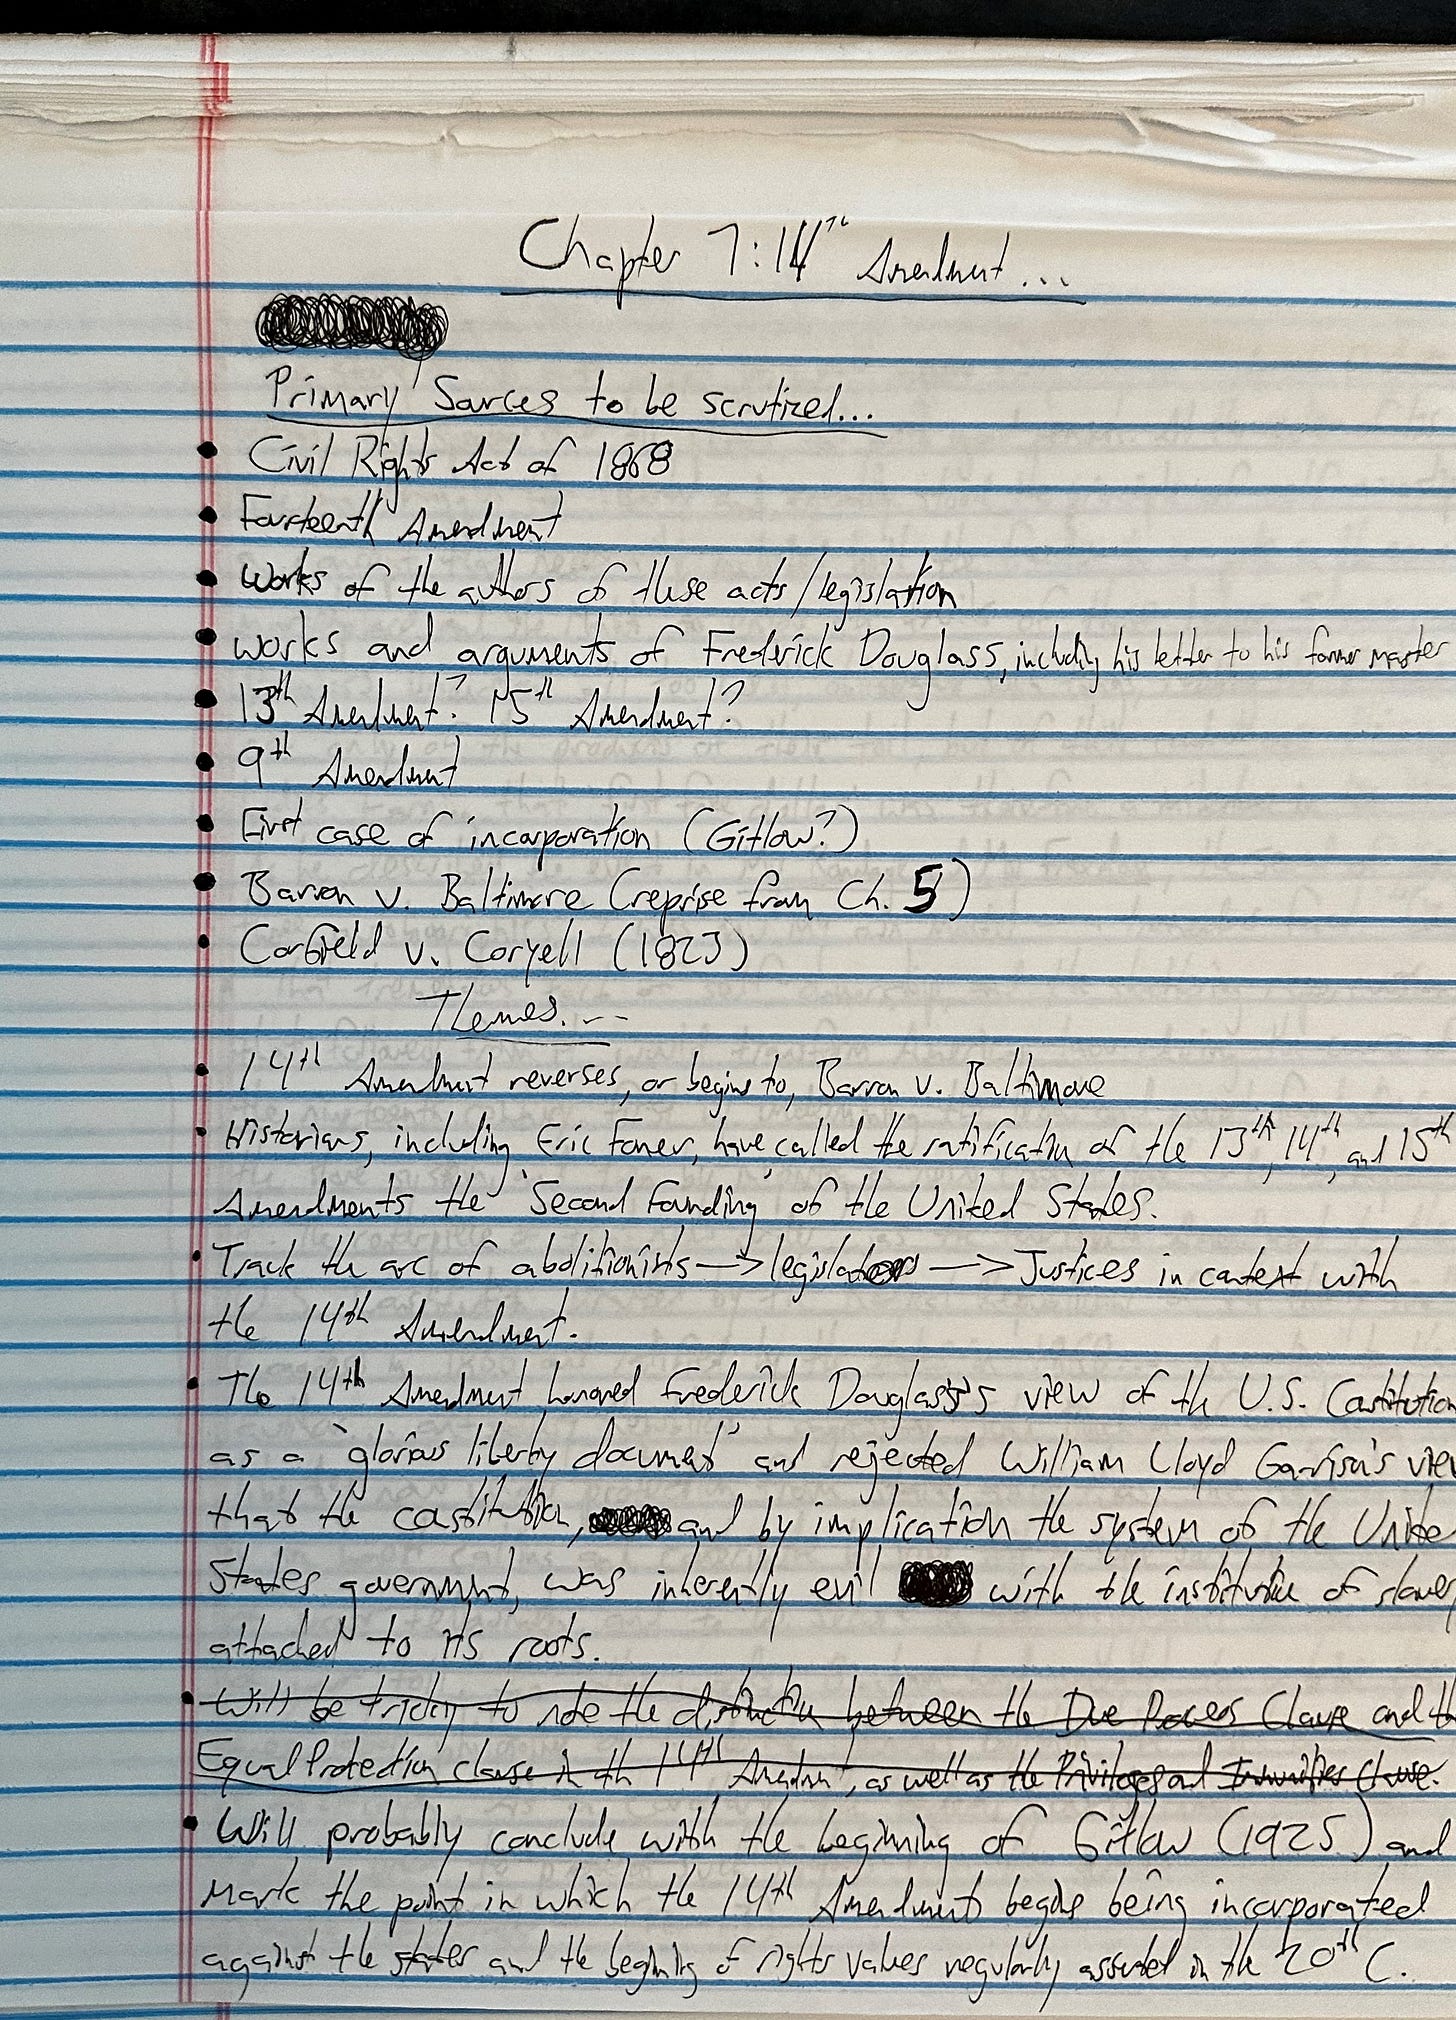 Chapter 7: 14th Amendment...
Primary Sources to be scrutized...
• Civil Rights Act of 1868
• Fourteenth Amendment
• Works of the authors of these acts/legislation
• works and arguments of Frederick Douglass, including his letter to his former master
• 13th Amendment? 15th Amendment?
• 9th Amendment
• First case of incorporation (Gitlow?)
• Barron v. Baltimore (reprise from Ch. 5)
• Corfield v. Coryell (1823)
Themes...
• 14th Amendment reverses, or begins to, Barron v. Baltimore
• Historians, including Eric Foner, have called the ratification of the 13th, 14th, and 15th
Amendments the 'Second Founding' of the United States.
• Track the arc of abolitionists —> legislators —> Justices in context with
the 14th Amendment.
• The 14th Amendment honored Frederick Douglass's view of the U.S. Constitution
as a 'glorious liberty document' and rejected William Lloyd Garrison's view
that the constitution, and by implication the system of the Unite
States government, was inherently evil with the institution of slaver
attached to its roots.
• Will be tricky to note the distinction between the Due Process Clause and th
Equal Protection clause in the 14th Amendment, as well as the Privileges and Immunities Clause.
• Will probably conclude with the beginning of Gitlow (1925) and
mark the point in which the 14th Amendment begins being incorporated
against the states and the beginning of rights values regularly asserted in the 20th C.